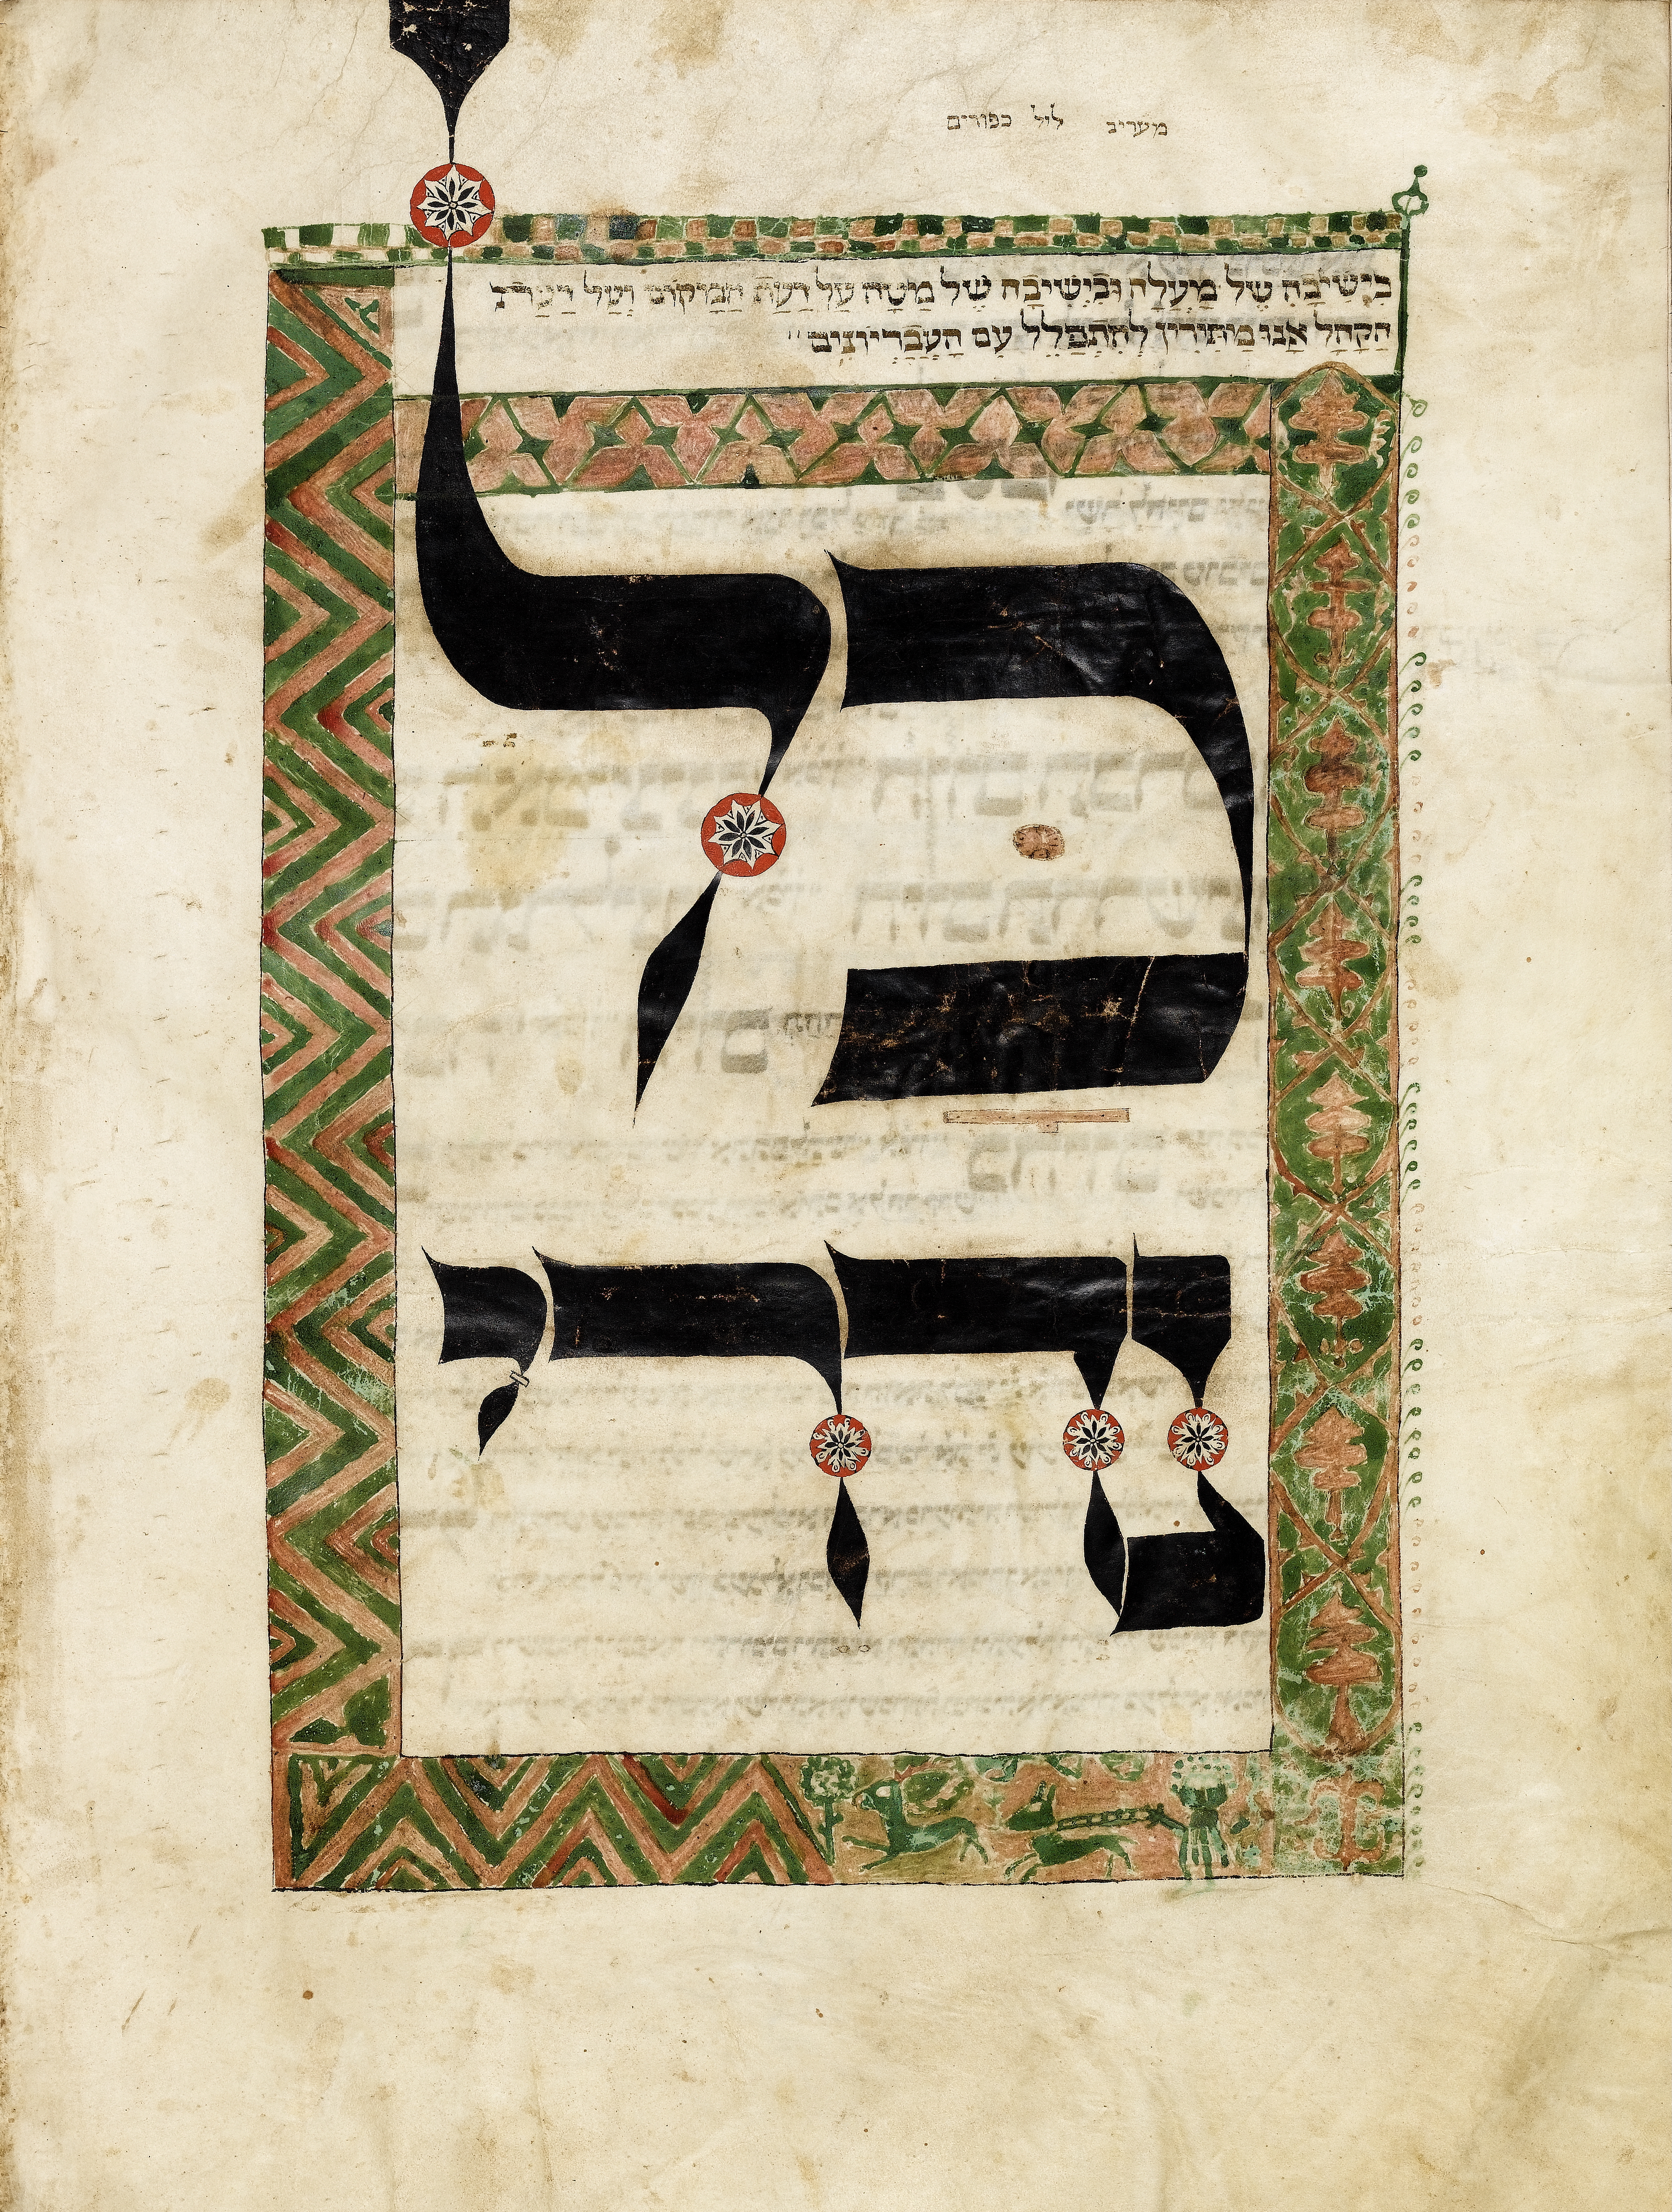 מעריב ליל כפורים
בִּישִׁיבָה שֶׁל מַעְלָה וּבִישִׁיבָה שֶׁל מַטָּה עַל דַּעַת הַמָּקוֹם וְעַל דַּעַת
הַקָּהָל אָנוּ מַתִּירִין לְהִתְפַּלֵּל עִם הָעֲבַרְיוֹנִים
כָּל
נִדְרֵי